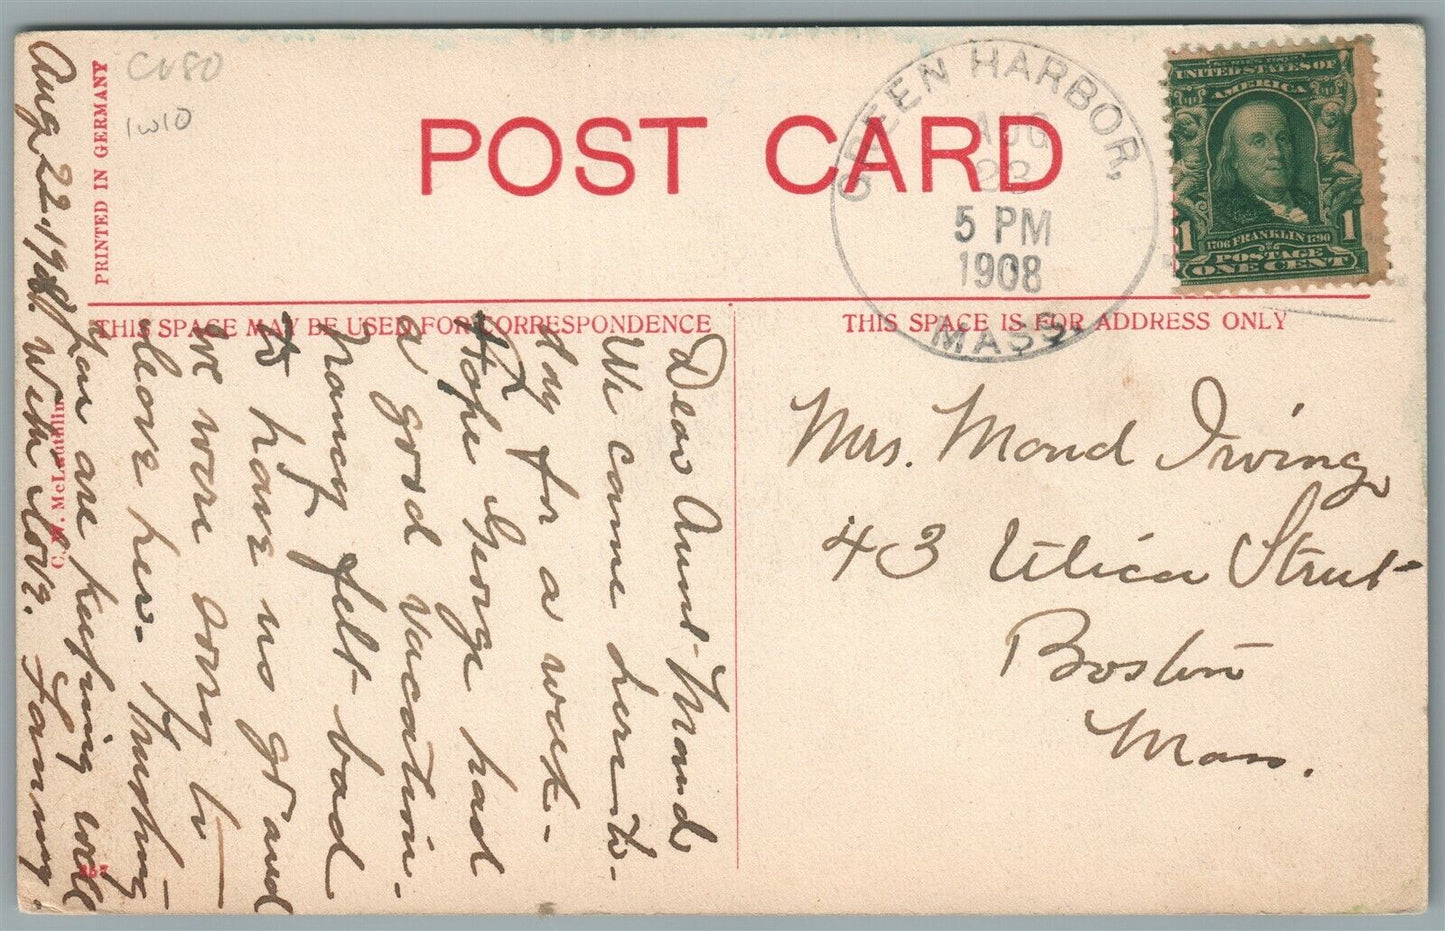 CV80
1W10
PRINTED IN GERMANY
POST CARD
GREEN HARBOR,
AUG
23
5 PM
1908
MASS.
SERIES 1902
UNITED STATES OF
AMERICA
1 1
1706 FRANKLIN 1790
POSTAGE
ONE CENT
THIS SPACE MAY BE USED FOR CORRESPONDENCE
THIS SPACE IS FOR ADDRESS ONLY
Mrs. Maud Irving
43 Utica Street
Boston
Mass.
Dear Aunt Maud
We came here to-
day for a week-
Hope George had
a good vacation.
Nancy felt bad
to have us go and
we were sorry to
leave her. Trusting
you are keeping well
Aug 22. 1908. With love. Fanny.
C. W. McLauthlin